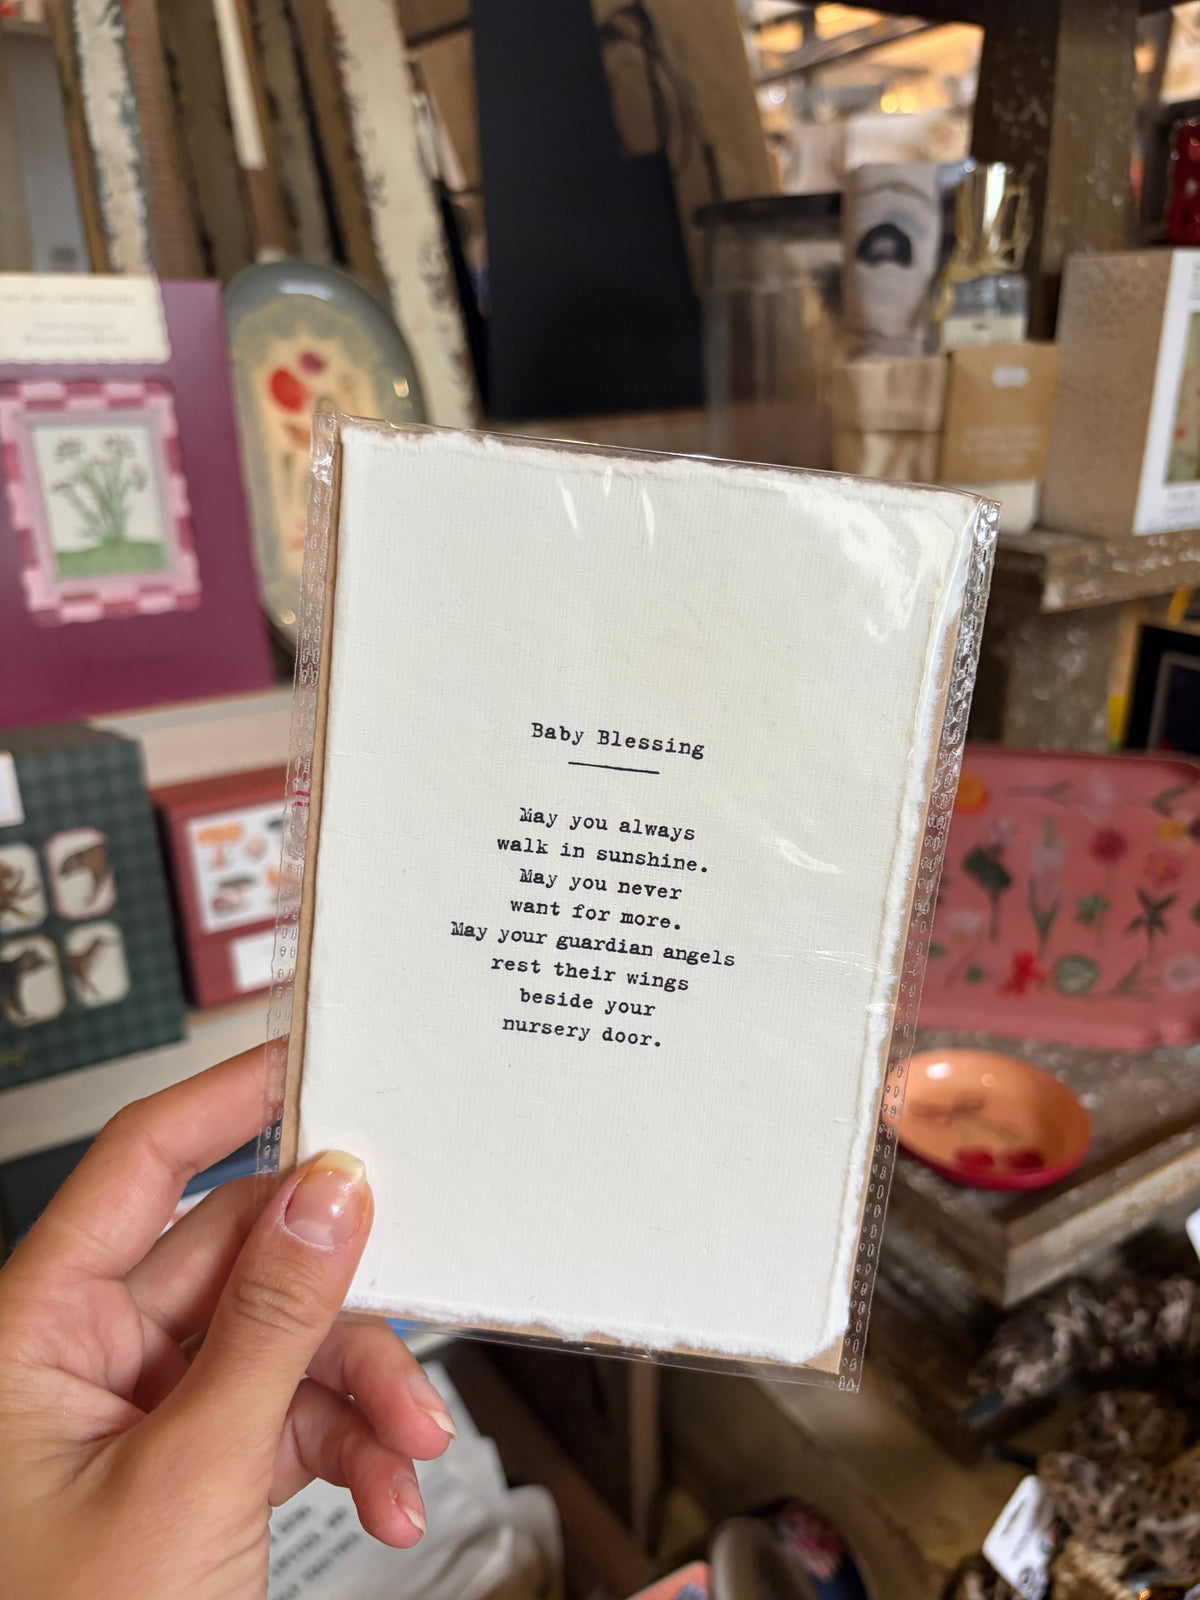 Baby Blessing
May you always
walk in sunshine.
May you never
want for more.
May your guardian angels
rest their wings
beside your
nursery door.